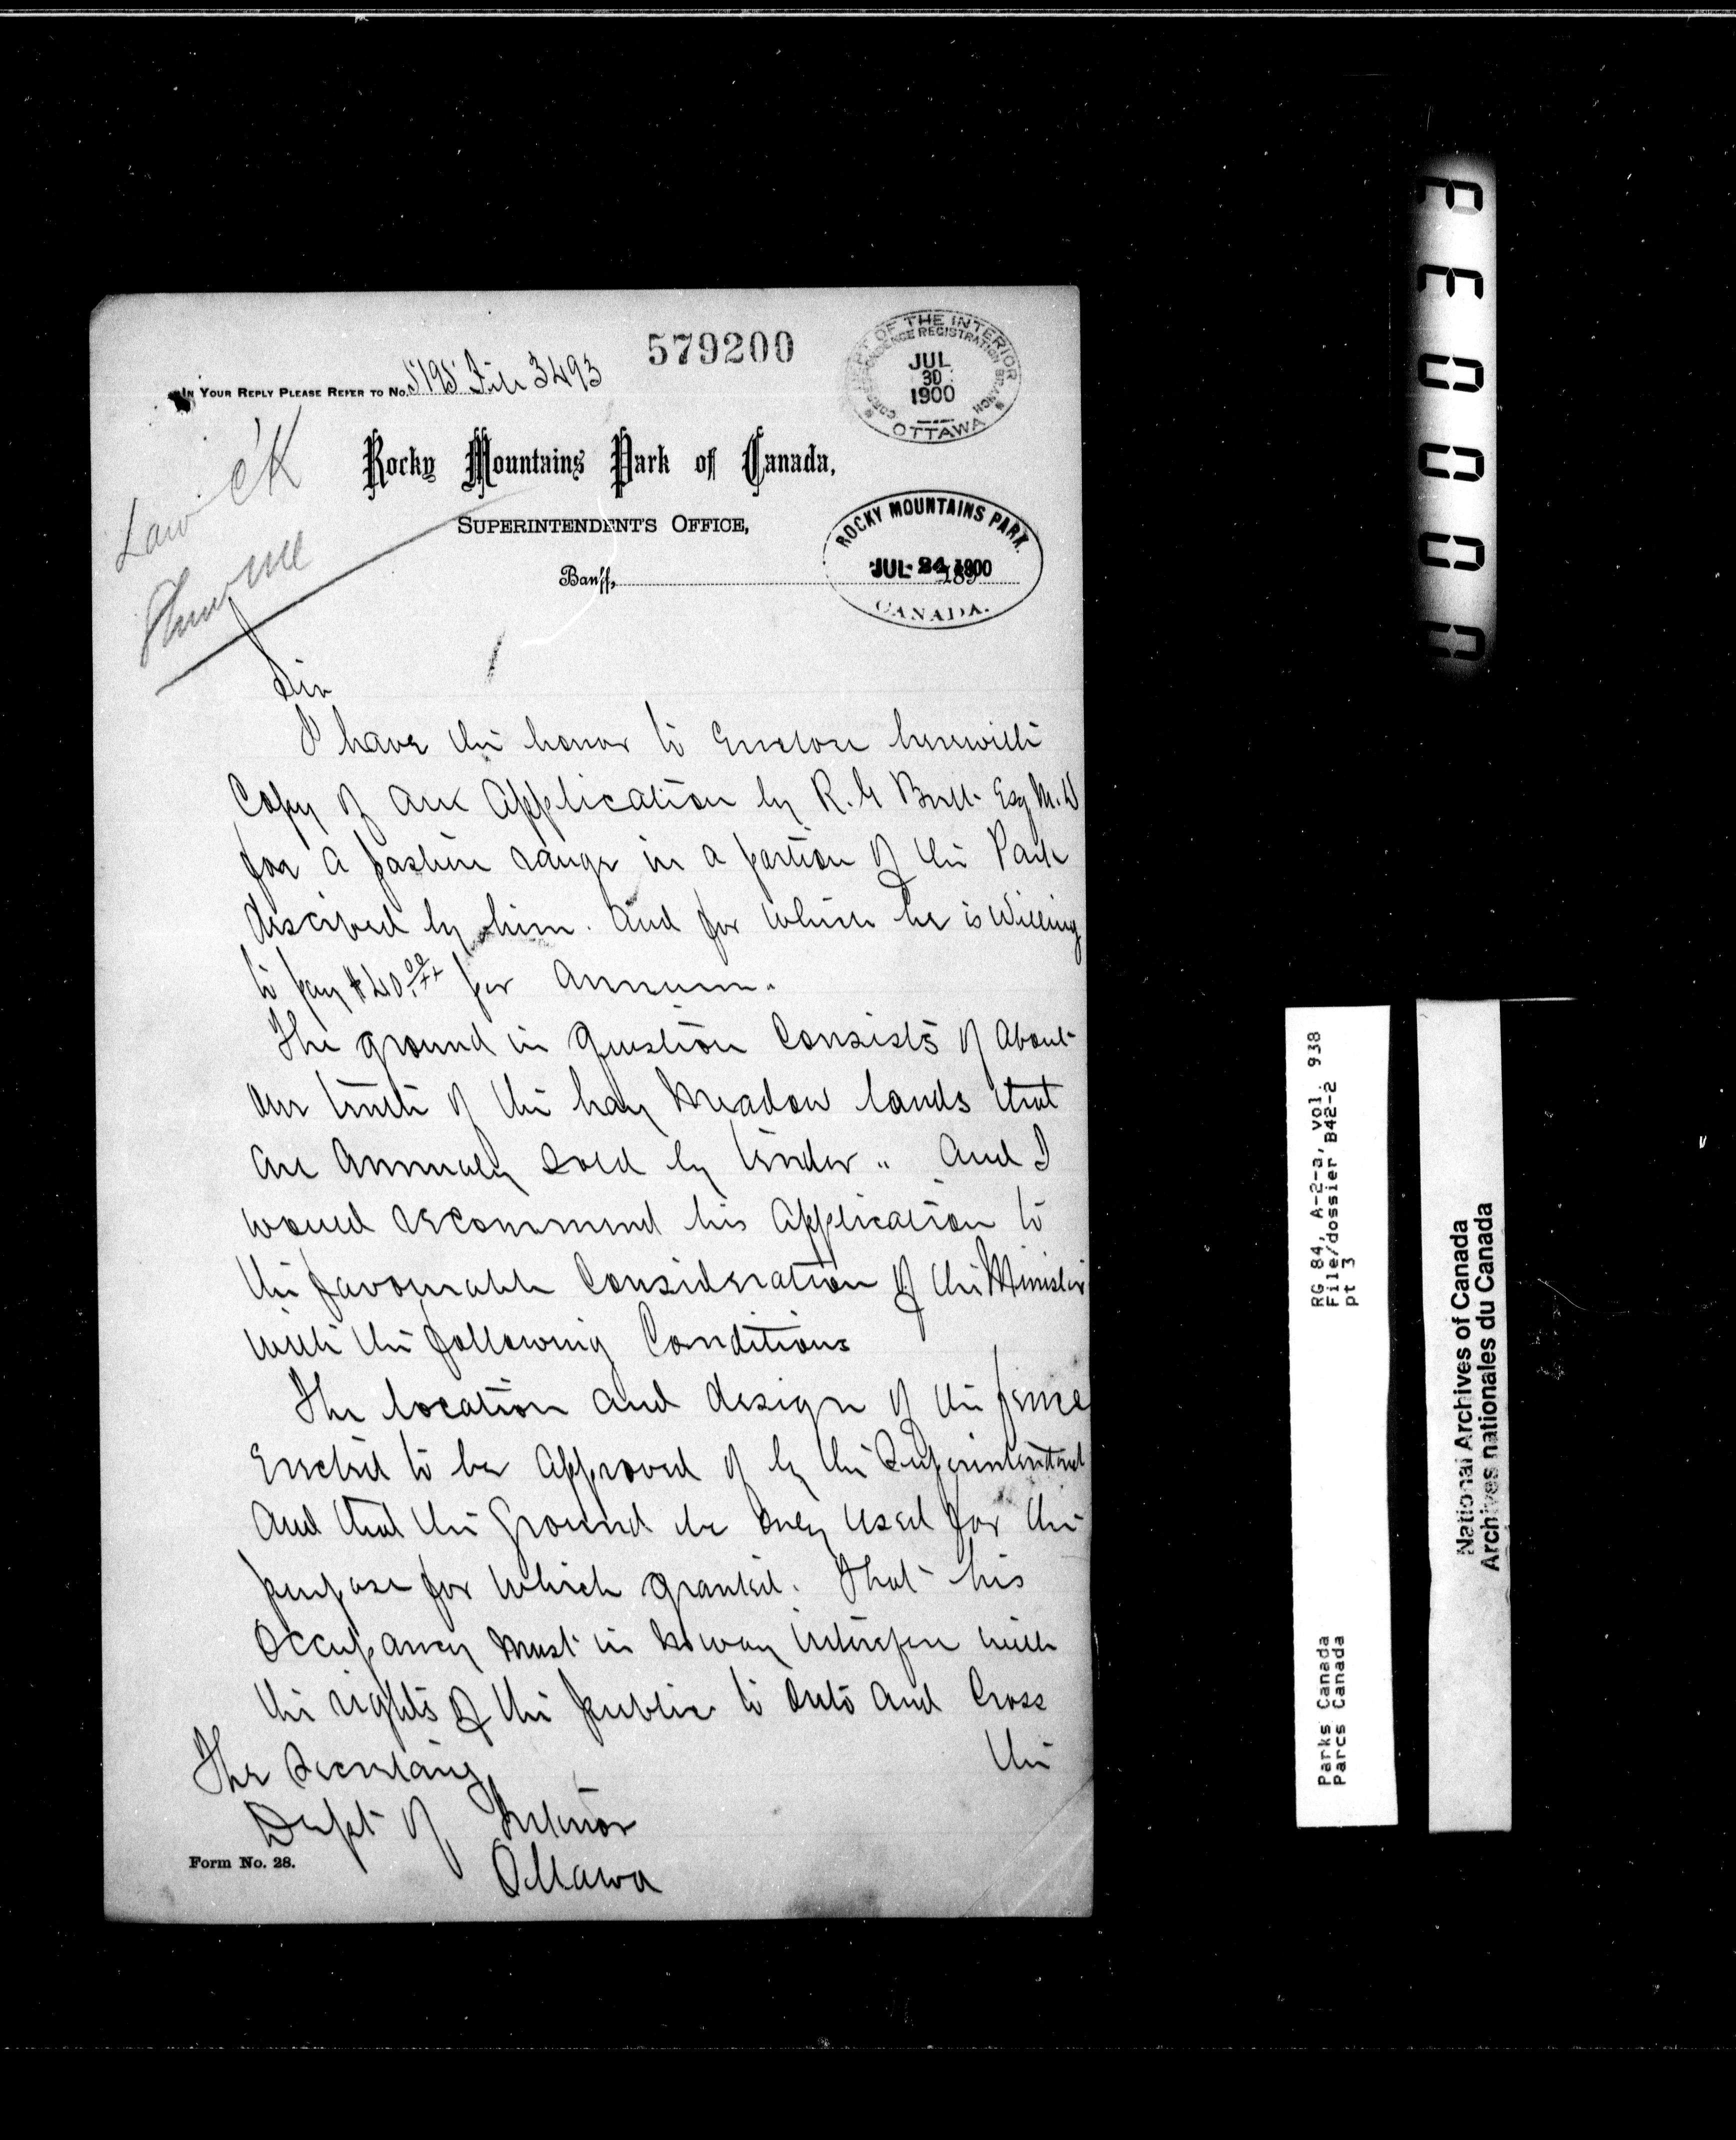 579200
DEPT OF THE INTERIOR
CORRESPONDENCE REGISTRATION BRANCH
JUL
30
1900
OTTAWA
IN YOUR REPLY PLEASE REFER TO No. 5195 File 3493
Rocky Mountains Park of Canada,
SUPERINTENDENT'S OFFICE,
ROCKY MOUNTAINS PARK.
JUL 24 1900
CANADA.
Banff, 189
Law
Sir
I have the honor to Enclose herewith
Copy of an Application by R. G Brett Esq M.D
for a pasture range in a portion of the Park
descibed by him. And for which he is Willing
to pay $40.00 per Annum.
The ground in Question Consists of About
one tenth of the hay Meadow lands that
are Annualy Sold by tender. And I
would recommend his Application to
the favourable Consideration of the Minister
with the following Conditions
The location and design of the fence
Erected to be Approved of by the Superintendent
And that the Ground be only used for the
purpose for which granted. That his
Occupancy must in no way interefere with
the rights of the public to and Cross
the
The Secretary
Dept of Interior
Ottawa
Form No. 28.
RG 84, A-2-a, vol. 938
File/dossier B42-2
pt 3
Parks Canada
Parcs Canada
National Archives of Canada
Archives nationales du Canada